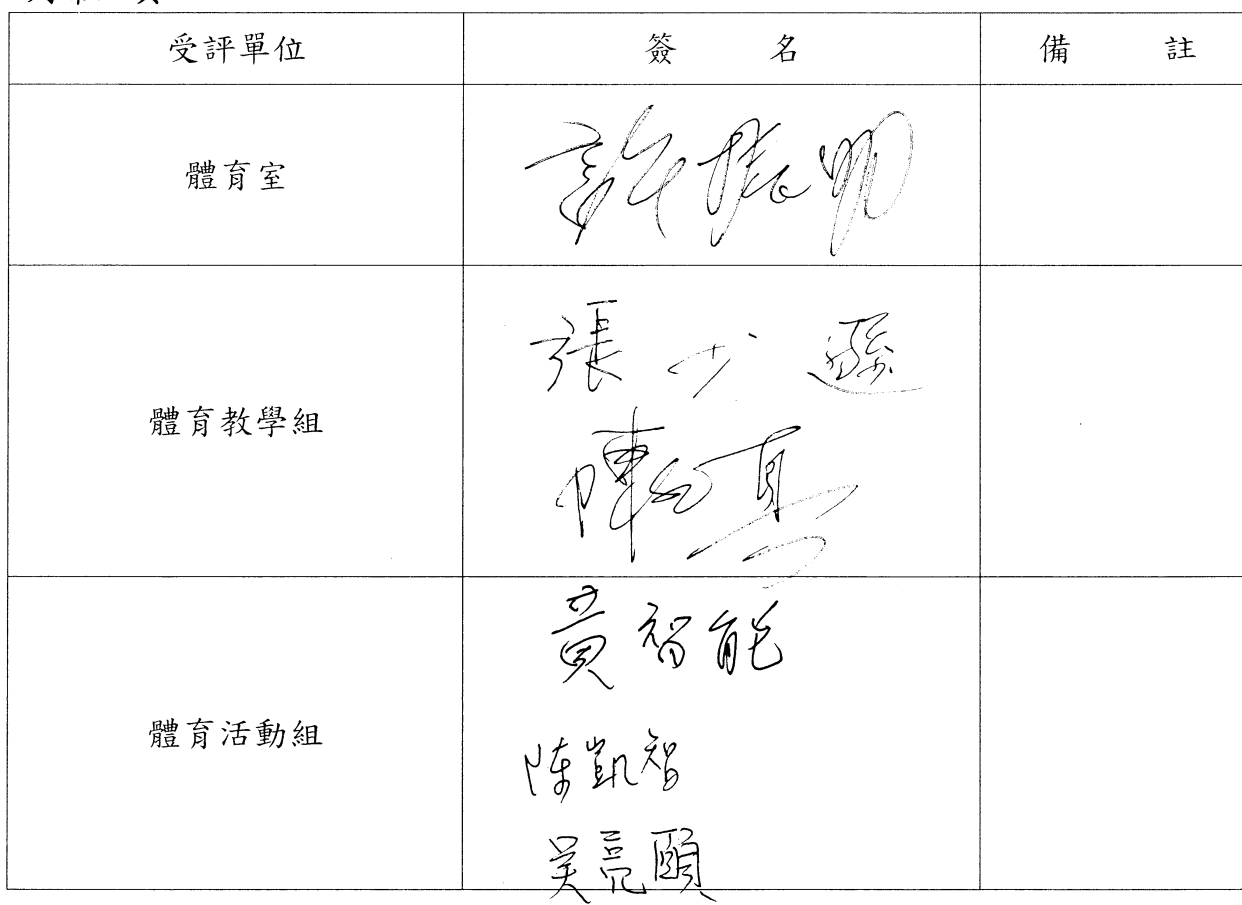 受評單位 簽名 備註
體育室 許振明
體育教學組 張少遜
陳
體育活動組 黃智能
陈凱智
吴亮頤